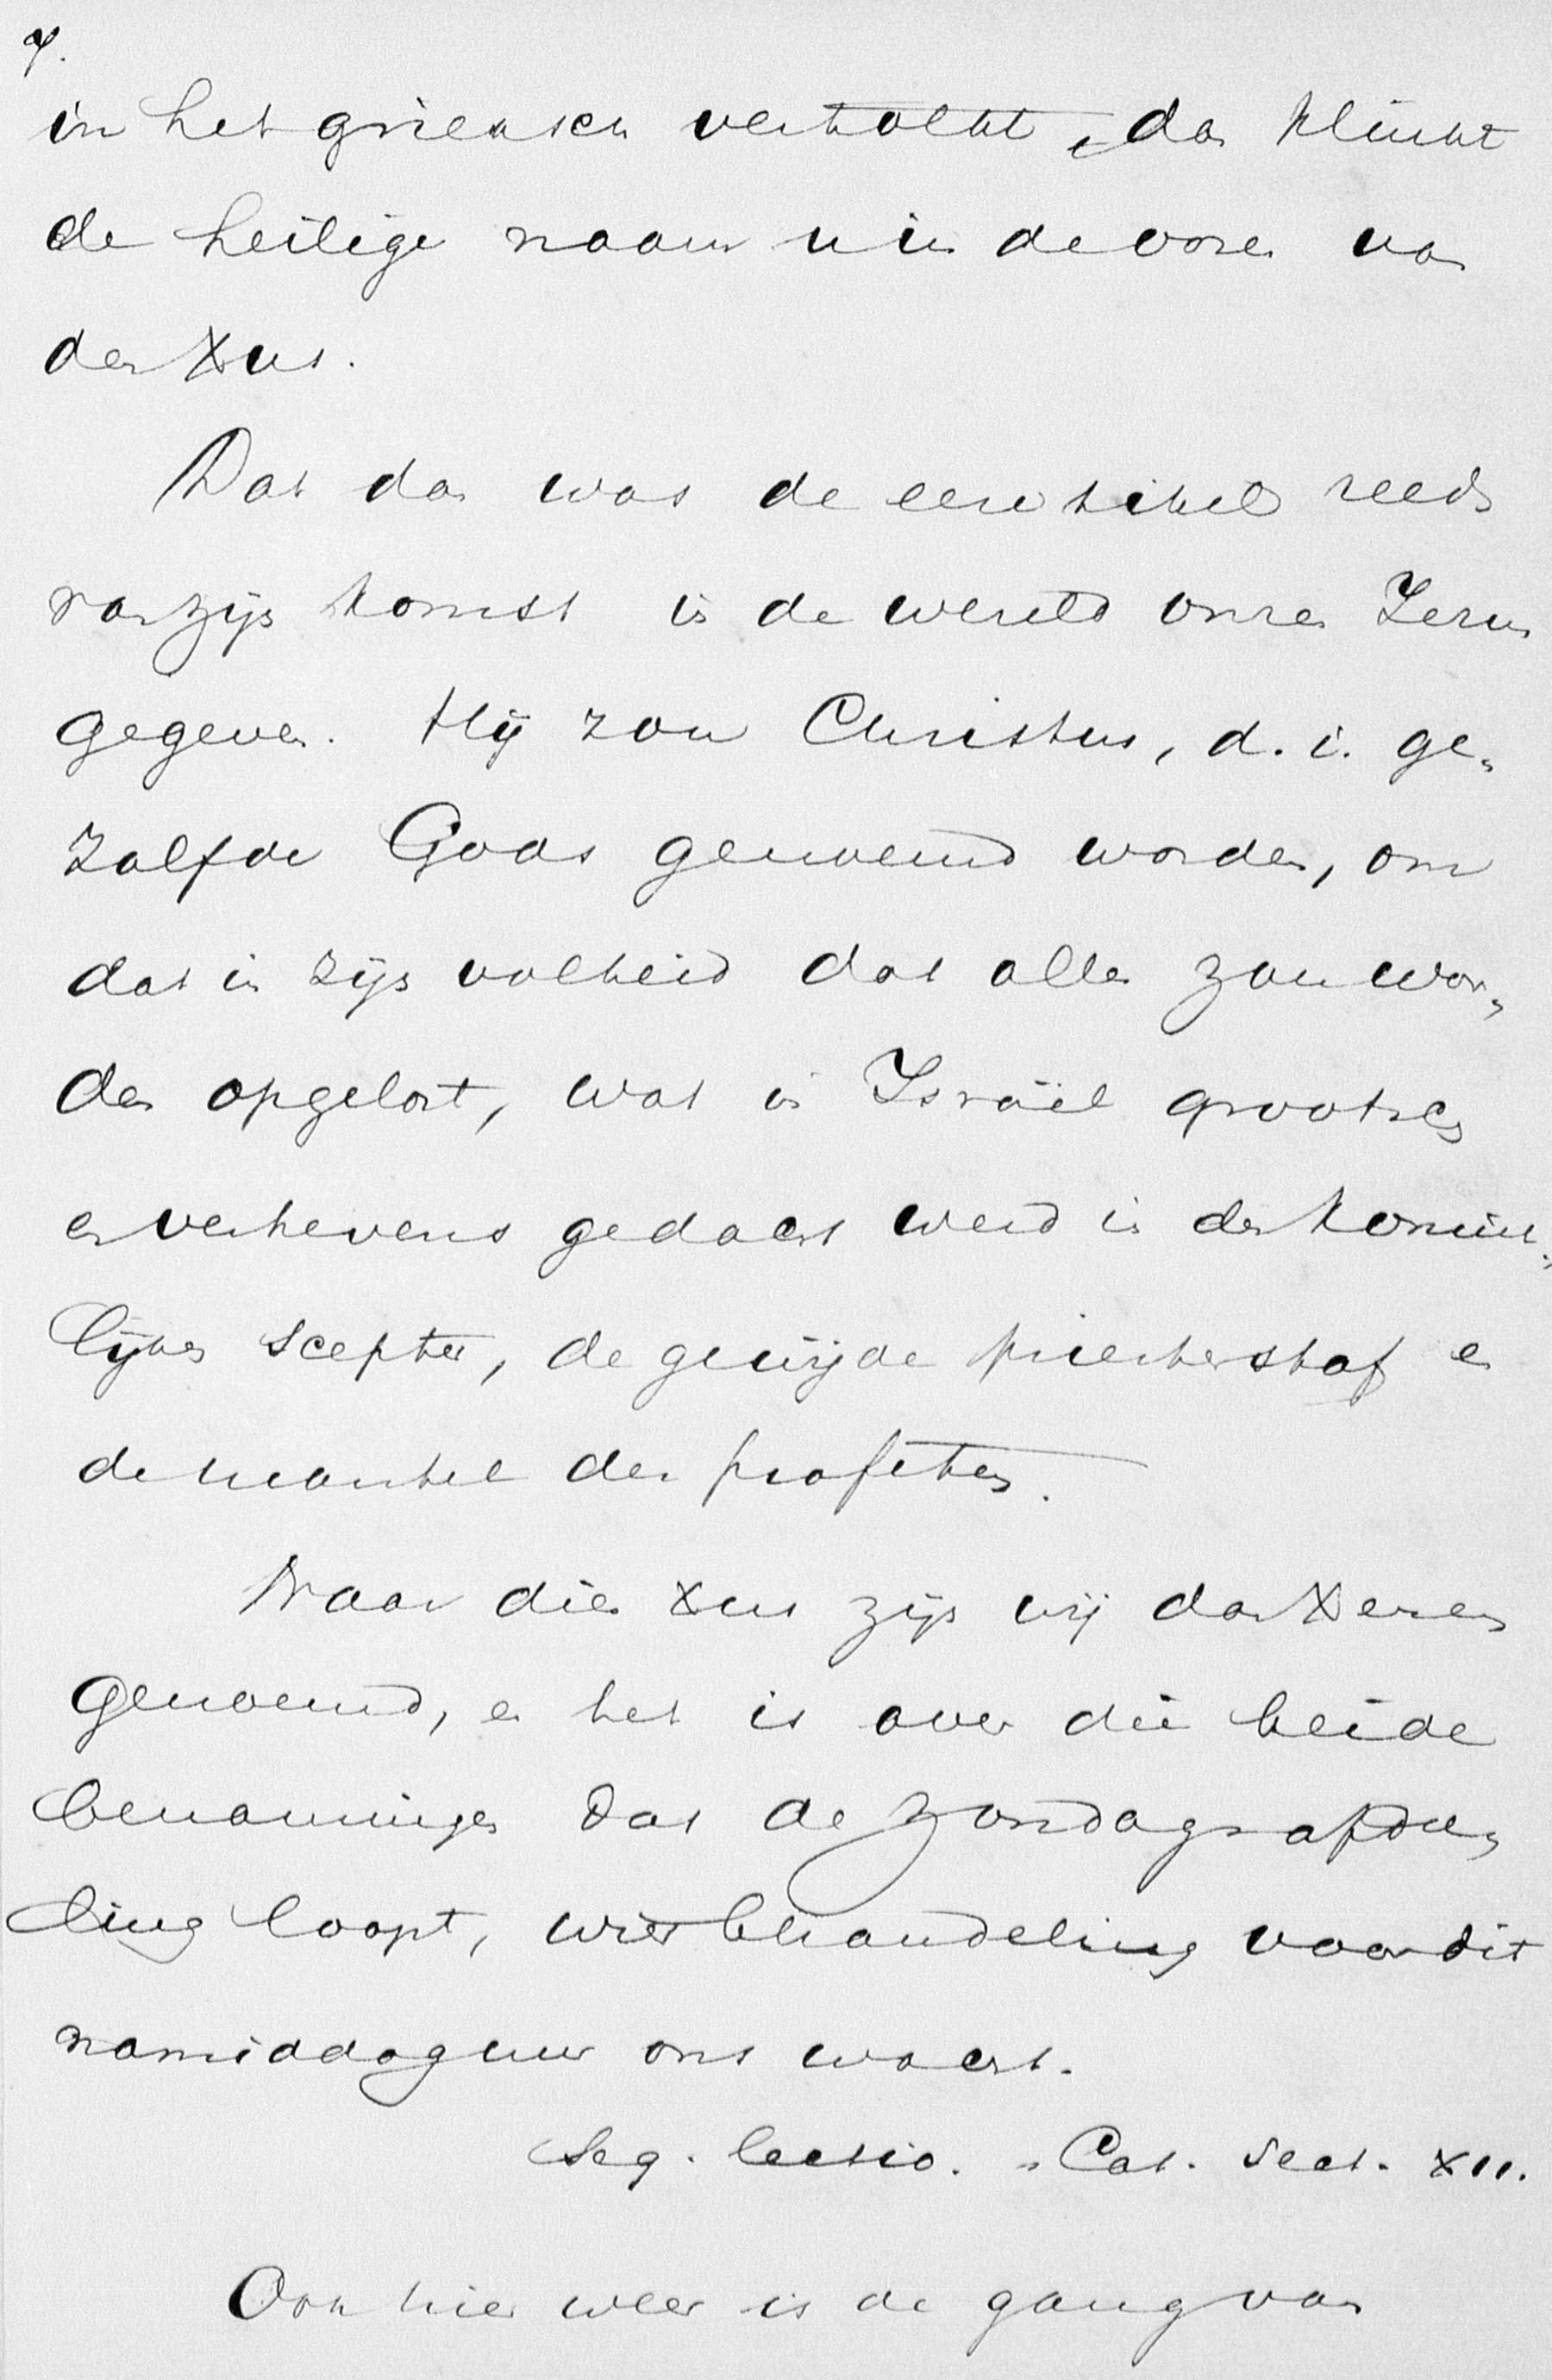 7.
in het grieksch vertolkt, dan klinkt
de heilige naam u in de ooren van
den Xus.
Dat dan was de eeretitel reeds
voor zijn komst in de wereld onzen Jezus
gegeven. Hij zou Christus, d. i. ge-
zalfde Gods genoemd worden, om
dat in zijn volheid dat alles zou wor-
den opgelost, wat in Israël grootsch
en verhevens gedacht werd in den konink-
lijken scepter, de gewijde priesterstaf en
de mantel der profeten.
Naar dien Xus zijn wij dan Xenen
genoemd, en het is over die beide
benamingen dat de Zondagsafdee-
ling loopt, wier behandeling voor dit
namiddaguur ons wacht.
Seq. lectio. - Cat. Sect. XII.
Ook hier weer is de gang van